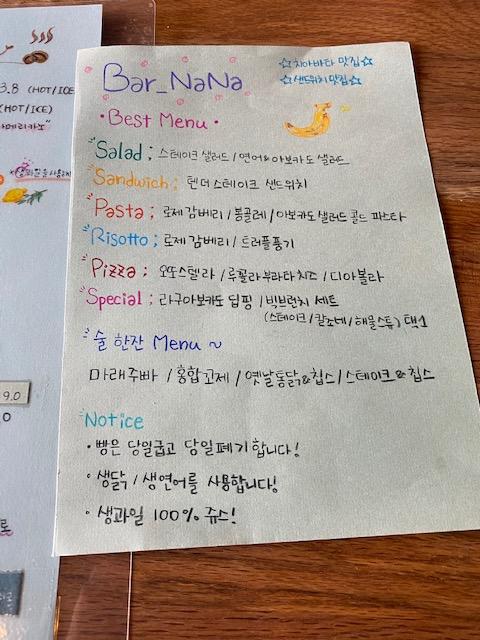 3.8 (HOT/ICE
(HOT/ICE)
9.0
Bar_NaNa
☆치아바타 맛집☆
☆샌드위치맛집☆
• Best Menu •
Salad ; 스테이크 샐러드 / 연어&아보카도 샐러드
Sandwich ; 텐더스테이크 샌드위치
Pasta ; 로제감베리 / 봉골레 / 아보카도 샐러드 콜드 파스타
Risotto ; 로제감베리 / 트러플풍기
Pizza ; 오또스텔라 / 루꼴라부라타치즈 / 디아볼라
Special ; 라구아보카도 딥핑 / 빅브런치 세트
(스테이크/칼조네/해물스튜) 택1
술 한잔 Menu ~
마레주빠 / 홍합고제 / 옛날통닭&칩스 / 스테이크&칩스
Notice
• 빵은 당일굽고 당일폐기합니다!
• 생닭 / 생연어를 사용합니다!
• 생과일 100% 쥬스!